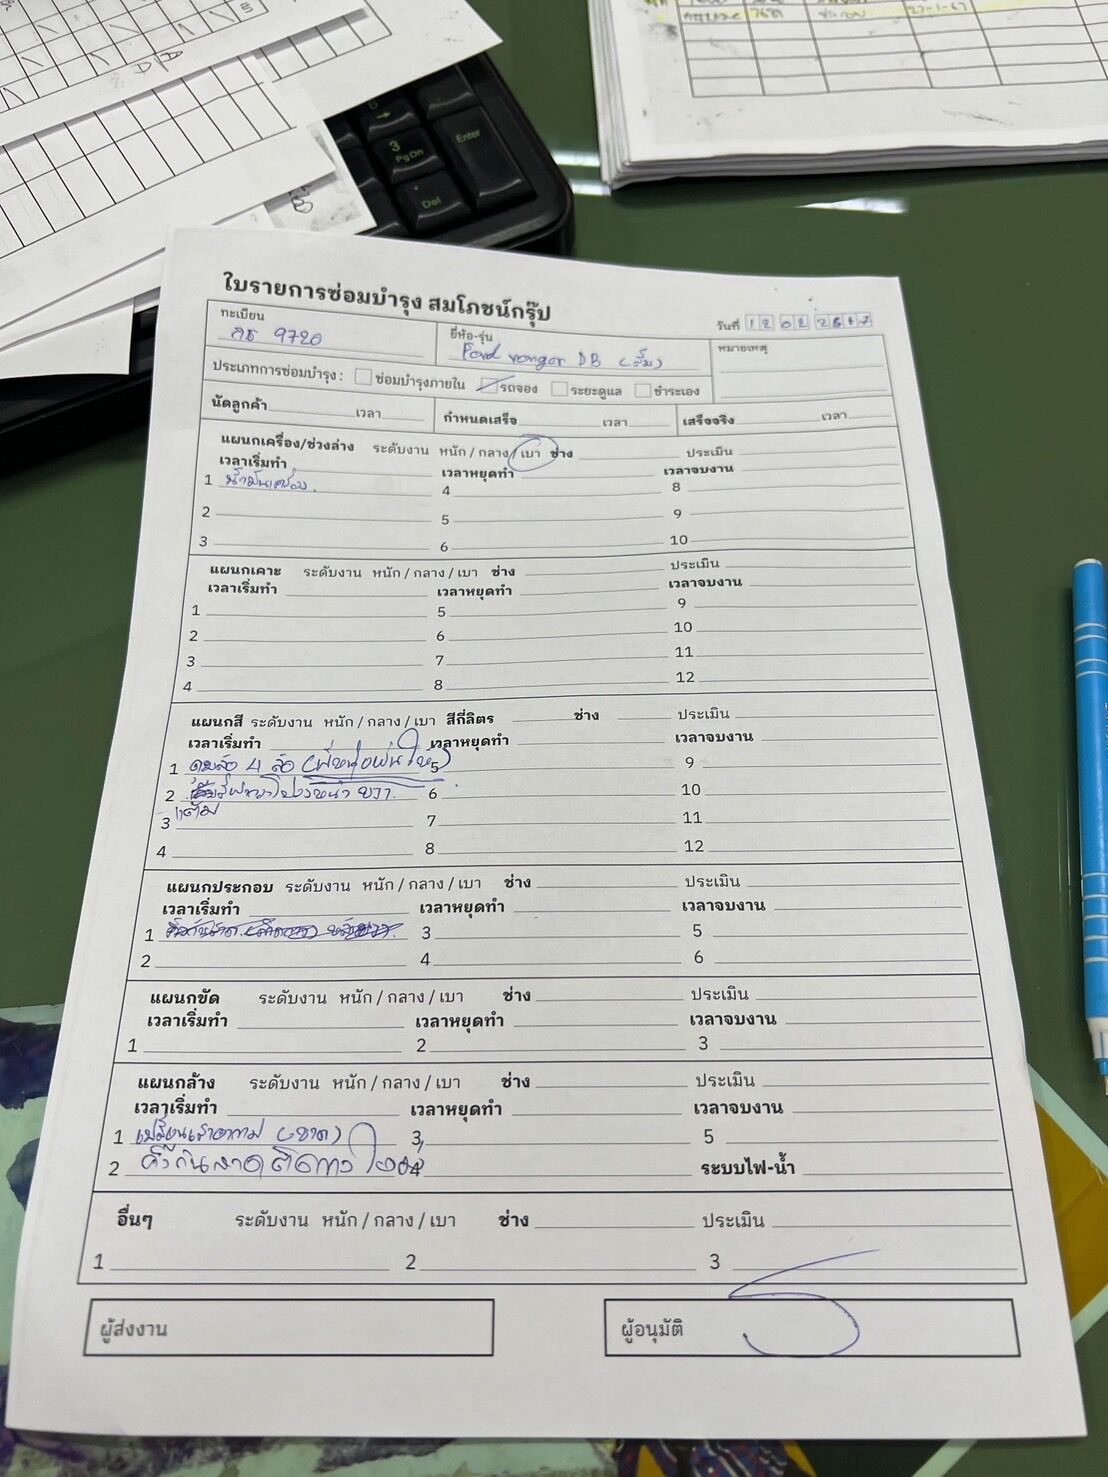 ใบรายการซ่อมบำรุง สมโภชน์กรุ๊ป
วันที่ 12 02 2567
ทะเบียน
9720
ยี่ห้อ-รุ่น
Ford ranger DB (ส้ม)
หมายเหตุ
ประเภทการซ่อมบำรุง : ซ่อมบำรุงภายใน รถจอง ระยะดูแล ชำระเอง
นัดลูกค้า เวลา กำหนดเสร็จ เวลา เสร็จจริง เวลา
แผนกเครื่อง/ช่วงล่าง ระดับงาน หนัก / กลาง / เบา ช่าง ประเมิน
เวลาเริ่มทำ เวลาหยุดทำ เวลาจบงาน
1 น้ำมันเครื่อง 4 8
2 5 9
3 6 10
แผนกเคาะ ระดับงาน หนัก / กลาง / เบา ช่าง ประเมิน
เวลาเริ่มทำ เวลาหยุดทำ เวลาจบงาน
1 5 9
2 6 10
3 7 11
4 8 12
แผนกสี ระดับงาน หนัก / กลาง / เบา สีกี่ลิตร ช่าง ประเมิน
เวลาเริ่มทำ เวลาหยุดทำ เวลาจบงาน
1 4 ล้อ 5 9
2 6 10
แต้ม
3 7 11
4 8 12
แผนกประกอบ ระดับงาน หนัก / กลาง / เบา ช่าง ประเมิน
เวลาเริ่มทำ เวลาหยุดทำ เวลาจบงาน
1 3 5
2 4 6
แผนกขัด ระดับงาน หนัก / กลาง / เบา ช่าง ประเมิน
เวลาเริ่มทำ เวลาหยุดทำ เวลาจบงาน
1 2 3
แผนกล้าง ระดับงาน หนัก / กลาง / เบา ช่าง ประเมิน
เวลาเริ่มทำ เวลาหยุดทำ เวลาจบงาน
1 เปลี่ยนเสาอากาศ (ขาด) 3 5
2 คิ้วกันสาด 4 ระบบไฟ-น้ำ
อื่นๆ ระดับงาน หนัก / กลาง / เบา ช่าง ประเมิน
1 2 3
ผู้ส่งงาน ผู้อนุมัติ
3 PgDn
Enter
Del